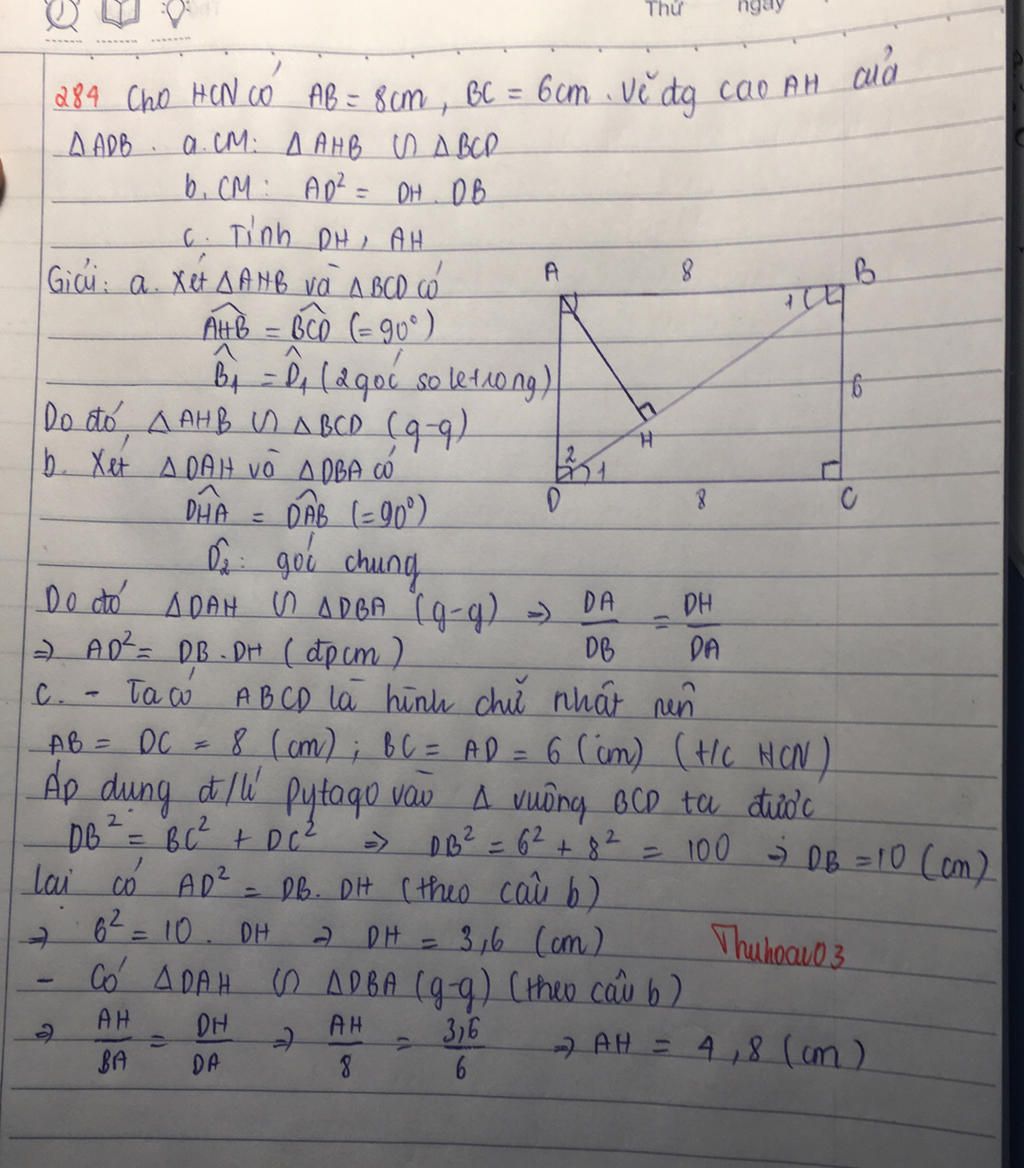 Thứ ngày
284 Cho HCN có AB = 8cm, BC = 6cm. Vẽ đg cao AH của
ΔADB. a. CM: ΔAHB ᔕ ΔBCD
b. CM: AD² = DH. DB
c. Tính DH, AH
Giải: a. Xét ΔAHB và ΔBCD có
A 8 B
1
AHB̂ = BCD̂ (= 90°)
B̂₁ = D̂₁ (2 góc so le trong)
6
Do đó, ΔAHB ᔕ ΔBCD (g-g)
H
b. Xét ΔDAH và ΔDBA có
2 1
D 8 C
DHÂ = DAB̂ (= 90°)
D̂₂: góc chung
Do đó ΔDAH ᔕ ΔDBA (g-g) => DA/DB = DH/DA
=> AD² = DB. DH (đpcm)
c. - Ta có ABCD là hình chữ nhật nên
AB = DC = 8 (cm); BC = AD = 6 (cm) (t/c HCN)
Áp dụng đ/lí pytago vào Δ vuông BCD ta được
DB² = BC² + DC² => DB² = 6² + 8² = 100 => DB = 10 (cm)
lại có AD² = DB. DH (theo câu b)
=> 6² = 10. DH => DH = 3,6 (cm)
Thuhoau03
- Có ΔDAH ᔕ ΔDBA (g-g) (theo câu b)
=> AH/BA = DH/DA => AH/8 = 3,6/6 => AH = 4,8 (cm)